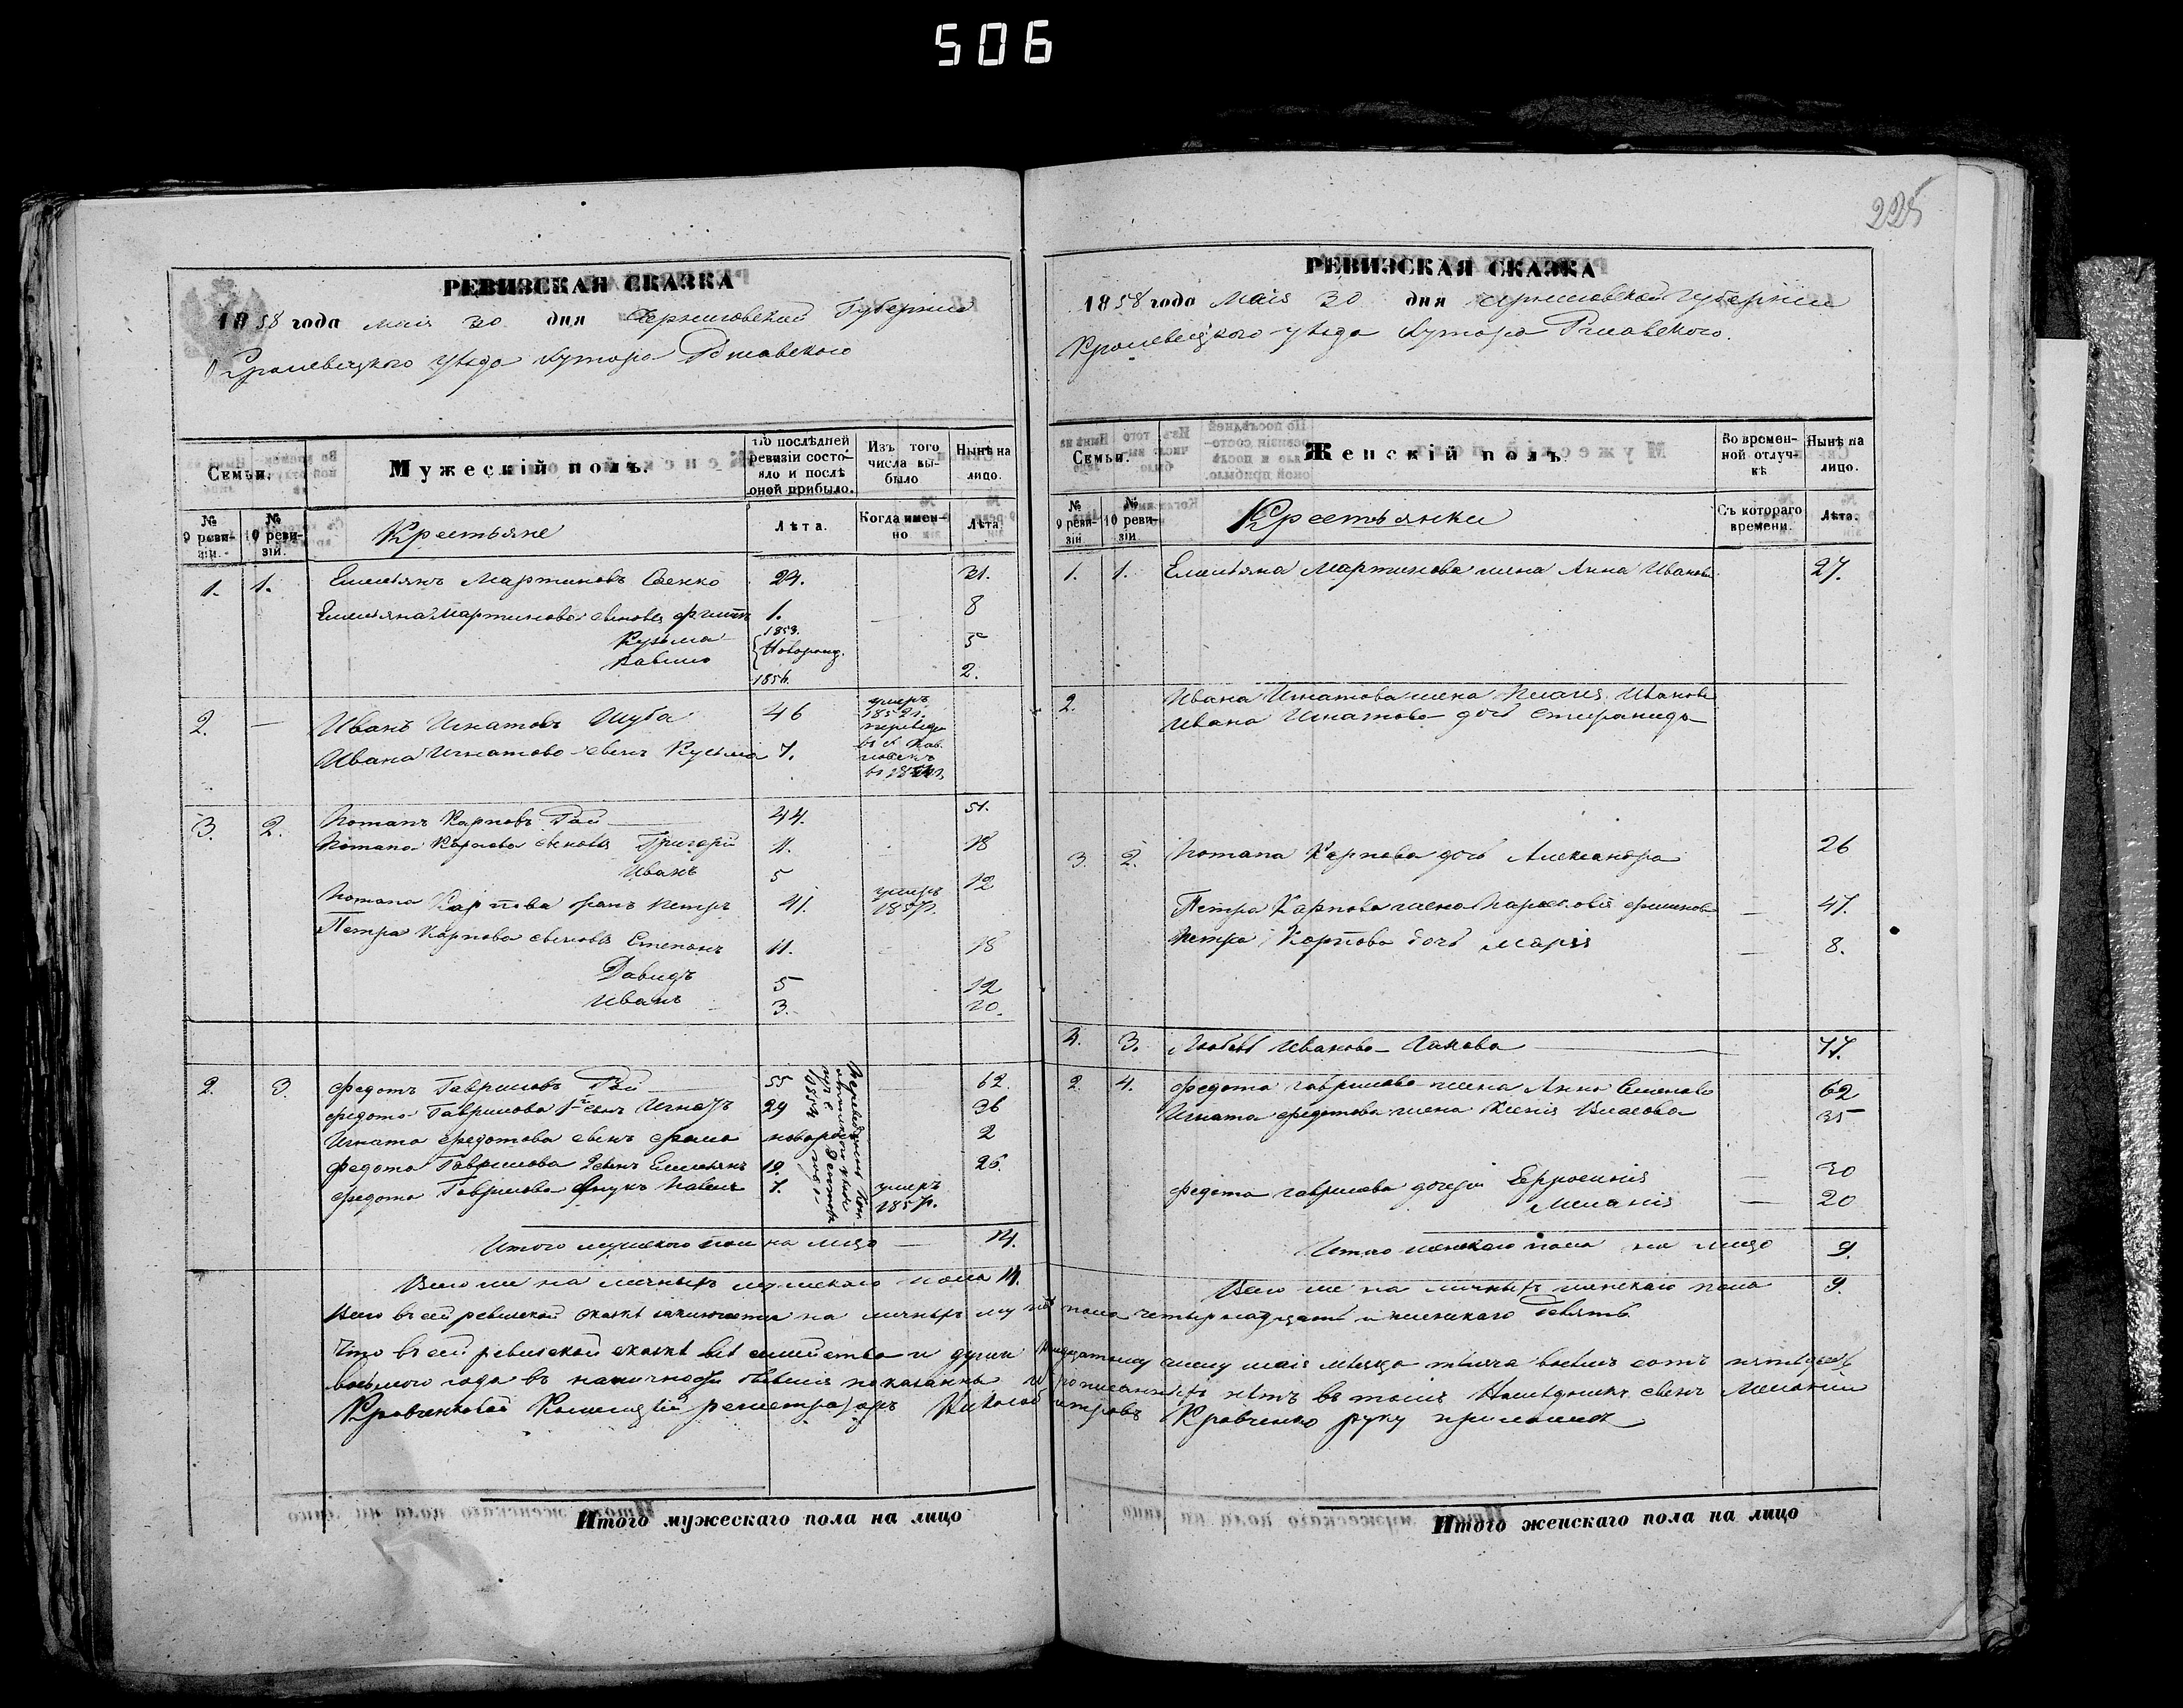 506
225
РЕВИЗСКАЯ СКАЗКА
1858 года маія 30 дня Черниговской Губерніи
Кролевецкого уѣзда хутора
Семьи.
Мужескій полъ.
По послѣдней ревизіи состояло и послѣ оной прибыло.
Изъ того числа выбыло
Нынѣ на лицо.
№ 9 ревизіи.
№ 10 ревизіи.
Крестьяне
Лѣта.
Когда именно
Лѣта.
1. 1. Емельянъ Мартиновъ 24. 31.
Емельяна Мартинова сыновья 1. 8
Кузьма 1853. 5
Павло Новорожд. 2.
1856.
2. — Иванъ Игнатовъ Шуба 46 умеръ 185
Ивана Игнатова сынъ Кузьма 7.
3. 2. Потапъ Карповъ Гай 44. 51.
Потапа Карпова сыновья Григорій 11. 18
Иванъ 5 12
Потапа Карпова братъ Петръ 41. умеръ 1857г.
Петра Карпова сыновья Степанъ 11. 18
Давидъ 5 12
Иванъ 3. 10.
2. 3. Федотъ Гавриловъ Гай 55 62.
Федота Гаврилова 1й сынъ Игнатъ 29 36
Игната Федотова сынъ новорож 2
Федота Гаврилова 2 сынъ Емельянъ 19. 26.
Федота Гаврилова внукъ Павелъ 7. умеръ 1857г.
Итого мужеского пола на лицо — 14.
Всего же на личныхъ мужескаго пола 14.
РЕВИЗСКАЯ СКАЗКА
1858 года маія 30 дня Черниговской Губерніи
Кролевецкого уѣзда хутора
Семьи.
Женскій полъ.
Во временной отлучкѣ
Нынѣ на лицо.
№ 9 ревизіи
№ 10 ревизіи
Крестьянки
Съ котораго времени.
Лѣта.
1. 1. Емельяна Мартинова жена Анна Иванова 27.
2. Ивана Игнатова жена Иванова
Ивана Игнатова дочь
3. 2. Потапа Карпова дочь Александра 26
Петра Карпова жена Парасковія — 47.
Петра Карпова дочь Марія — 8.
4. 3. Любовь Иванова 77.
2. 4. Федота Гаврилова жена Анна Семенова 62
Игната Федотова жена Ксенія Власова 35
Федота Гаврилова дочери Евфросинія — 30
Меланія — 20
Итого женскаго пола на лицо 9.
Всего же на личныхъ женскаго пола 9.
Всего въ сей ревизской сказкѣ заключается на личныхъ муж. пола четырнадцать и женскаго девять.
Что въ сей ревизской сказкѣ всѣ семейства и души тридцатому числу маія мѣсяца тысяча восемь сотъ пятьдесятъ
восьмого года въ наличности бывшія показаны и прописныхъ нѣтъ въ томъ
регистраторъ Николай Петровъ Кравченко руку приложилъ
Итого мужескаго пола на лицо
Итого женскаго пола на лицо